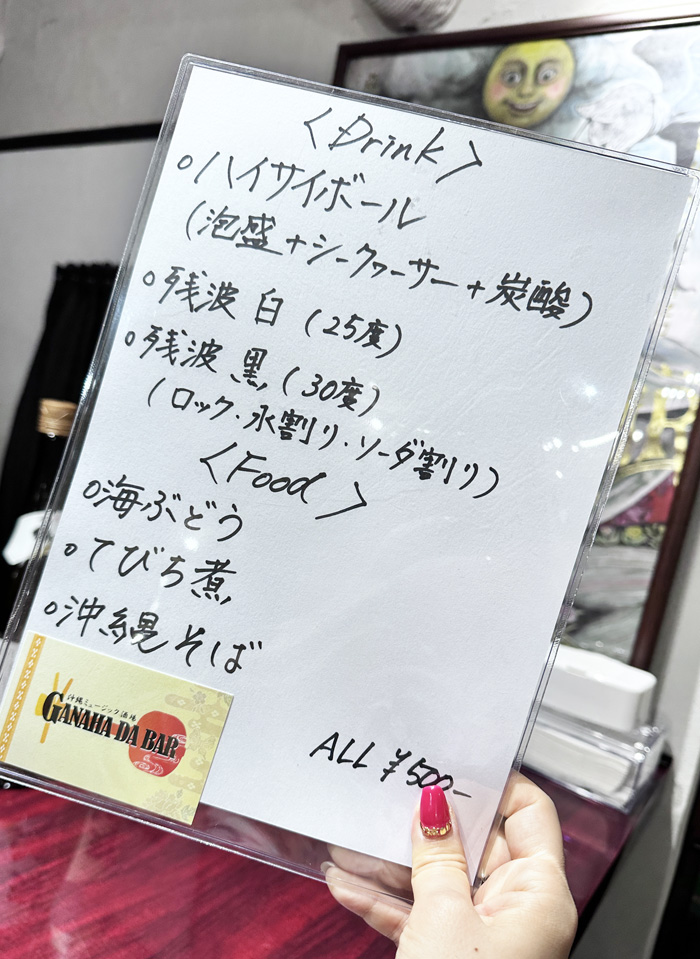 <Drink>
○ハイサイボール
(泡盛+シークヮーサー+炭酸)
○残波 白 (25度)
○残波 黒 (30度)
(ロック・水割り・ソーダ割り)
<Food>
○海ぶどう
○てびち煮
○沖縄そば
沖縄ミュージック酒場
GANAHA DA BAR
ALL ¥500-